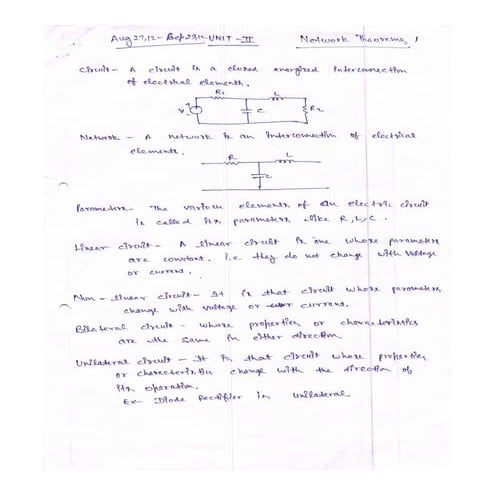 Aug 27,12 - Sep 29,12 UNIT - II Network Theorems 1
Circuit - A circuit is a closed energized interconnection
of electrical elements.
R1 L
V C R2
Network - A network is an interconnection of electrical
elements.
R L
C
Parameters - The various elements of an electric circuit
is called its parameters like R, L, C.
Linear circuit - A linear circuit is one whose parameters
are constant. i.e they do not change with voltage
or current.
Non-linear circuit - It is that circuit whose parameters
change with voltage or current.
Bilateral circuit - whose properties or characteristics
are the same in either direction
Unilateral circuit - It is that circuit whose properties
or characteristics change with the direction of
its operation.
Ex- Diode Rectifier is unilateral